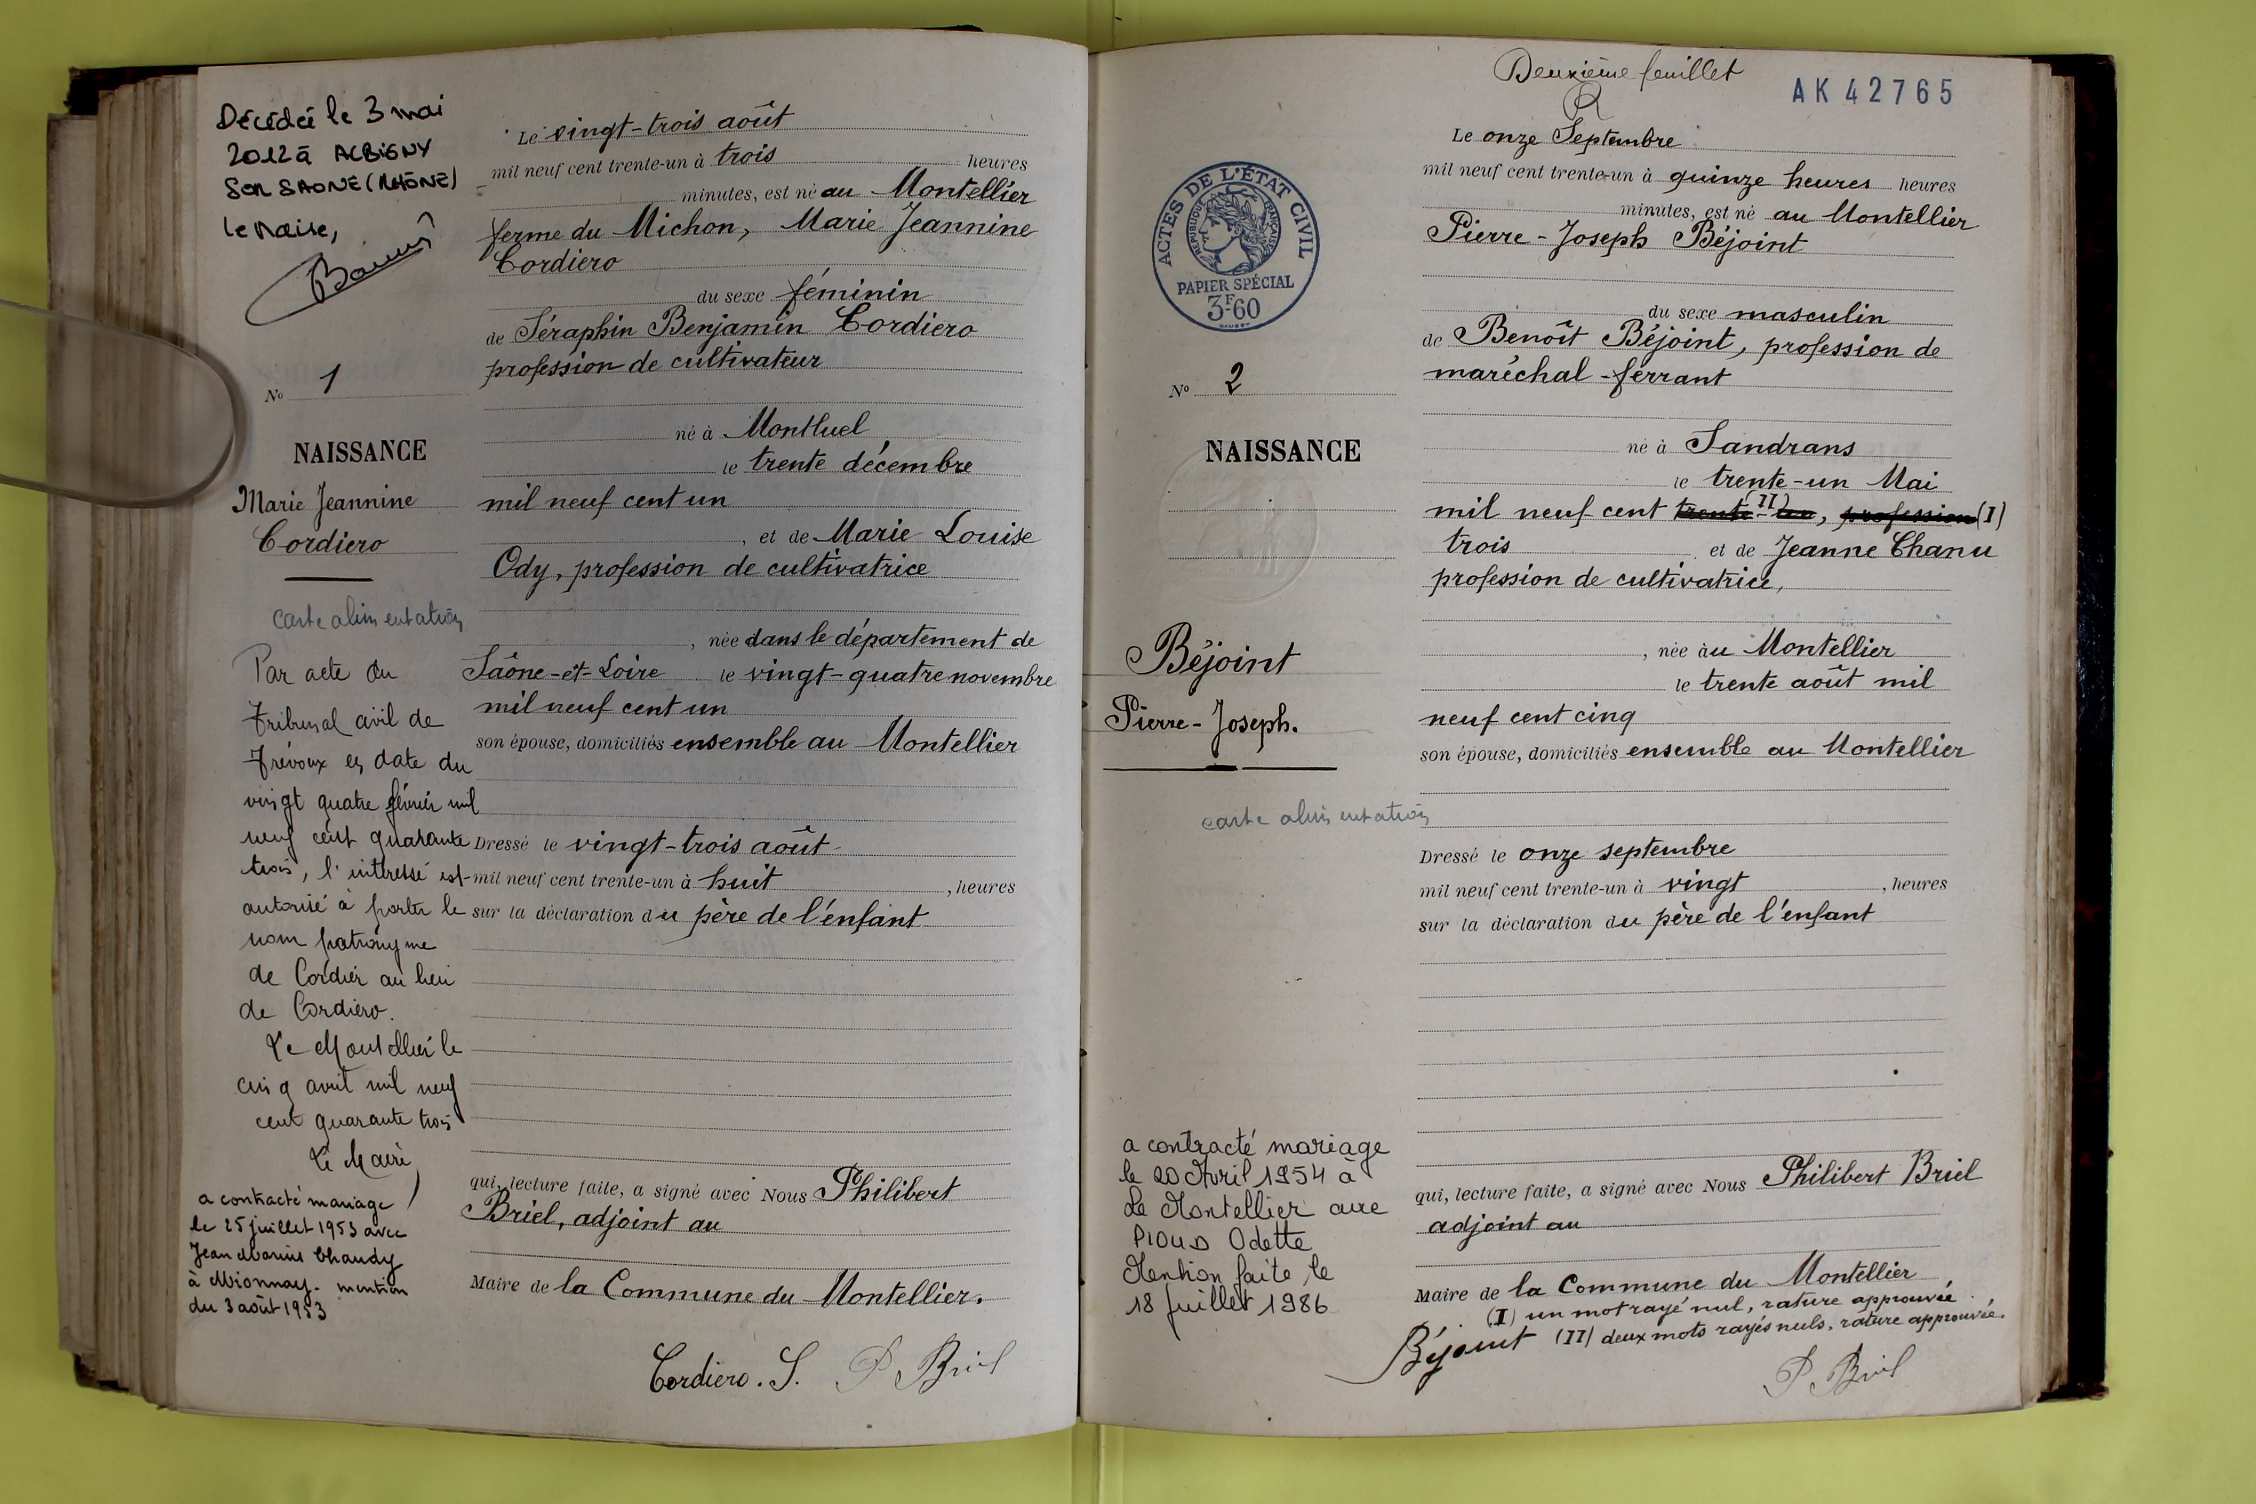 Décédée le 3 mai
2012 à ALBIGNY
Sur SAONE (RHÔNE)
le Maire,
N° 1
NAISSANCE
Marie Jeannine
Cordiero
carte alimentation
Par acte du
Tribunal civil de
Trévoux en date du
vingt quatre février mil
neuf cent quarante
trois, l'intéressé est
autorisé à porter le
nom patronyme
de Cordier au lieu
de Cordiero.
Le Montellier le
cinq avril mil neuf
cent quarante trois
Le Maire
a contracté mariage
le 25 juillet 1953 avec
Jean Marius Chaudy
à Mionnay. mention
du 3 août 1953
Le vingt-trois août
mil neuf cent trente-un à trois heures
minutes, est né au Montellier
ferme du Michon, Marie Jeannine
Cordiero
du sexe féminin
de Séraphin Benjamin Cordiero
profession de cultivateur
né à Montluel
le trente décembre
mil neuf cent un
, et de Marie Louise
Ody, profession de cultivatrice
, née dans le département de
Saône-et-Loire le vingt-quatre novembre
mil neuf cent un
son épouse, domiciliés ensemble au Montellier
Dressé le vingt-trois août
mil neuf cent trente-un à huit , heures
sur la déclaration du père de l'enfant
qui, lecture faite, a signé avec Nous Philibert
Briel, adjoint au
Maire de la Commune du Montellier.
Cordiero. S. P Briel
Deuxième feuillet
AK 42765
ACTES DE L'ÉTAT CIVIL
RÉPUBLIQUE FRANÇAISE
PAPIER SPÉCIAL
3F60
N° 2
NAISSANCE
Béjoint
Pierre-Joseph.
carte alimentation
a contracté mariage
le 20 Avril 1954 à
Le Montellier avec
PIOUD Odette
Mention faite le
18 Juillet 1986
Le onze Septembre
mil neuf cent trente-un à quinze heures heures
minutes, est né au Montellier
Pierre-Joseph Béjoint
du sexe masculin
de Benoît Béjoint, profession de
maréchal-ferrant
né à Sandrans
le trente-un Mai
mil neuf cent trente-un (II), profession (I)
trois et de Jeanne Chanu
profession de cultivatrice,
, née àu Montellier
le trente août mil
neuf cent cinq
son épouse, domiciliés ensemble au Montellier
Dressé le onze septembre
mil neuf cent trente-un à vingt , heures
sur la déclaration du père de l'enfant
qui, lecture faite, a signé avec Nous Philibert Briel
adjoint au
Maire de la Commune du Montellier
(I) un mot rayé nul, rature approuvée.
Béjoint (II) deux mots rayés nuls, rature approuvée.
P Briel